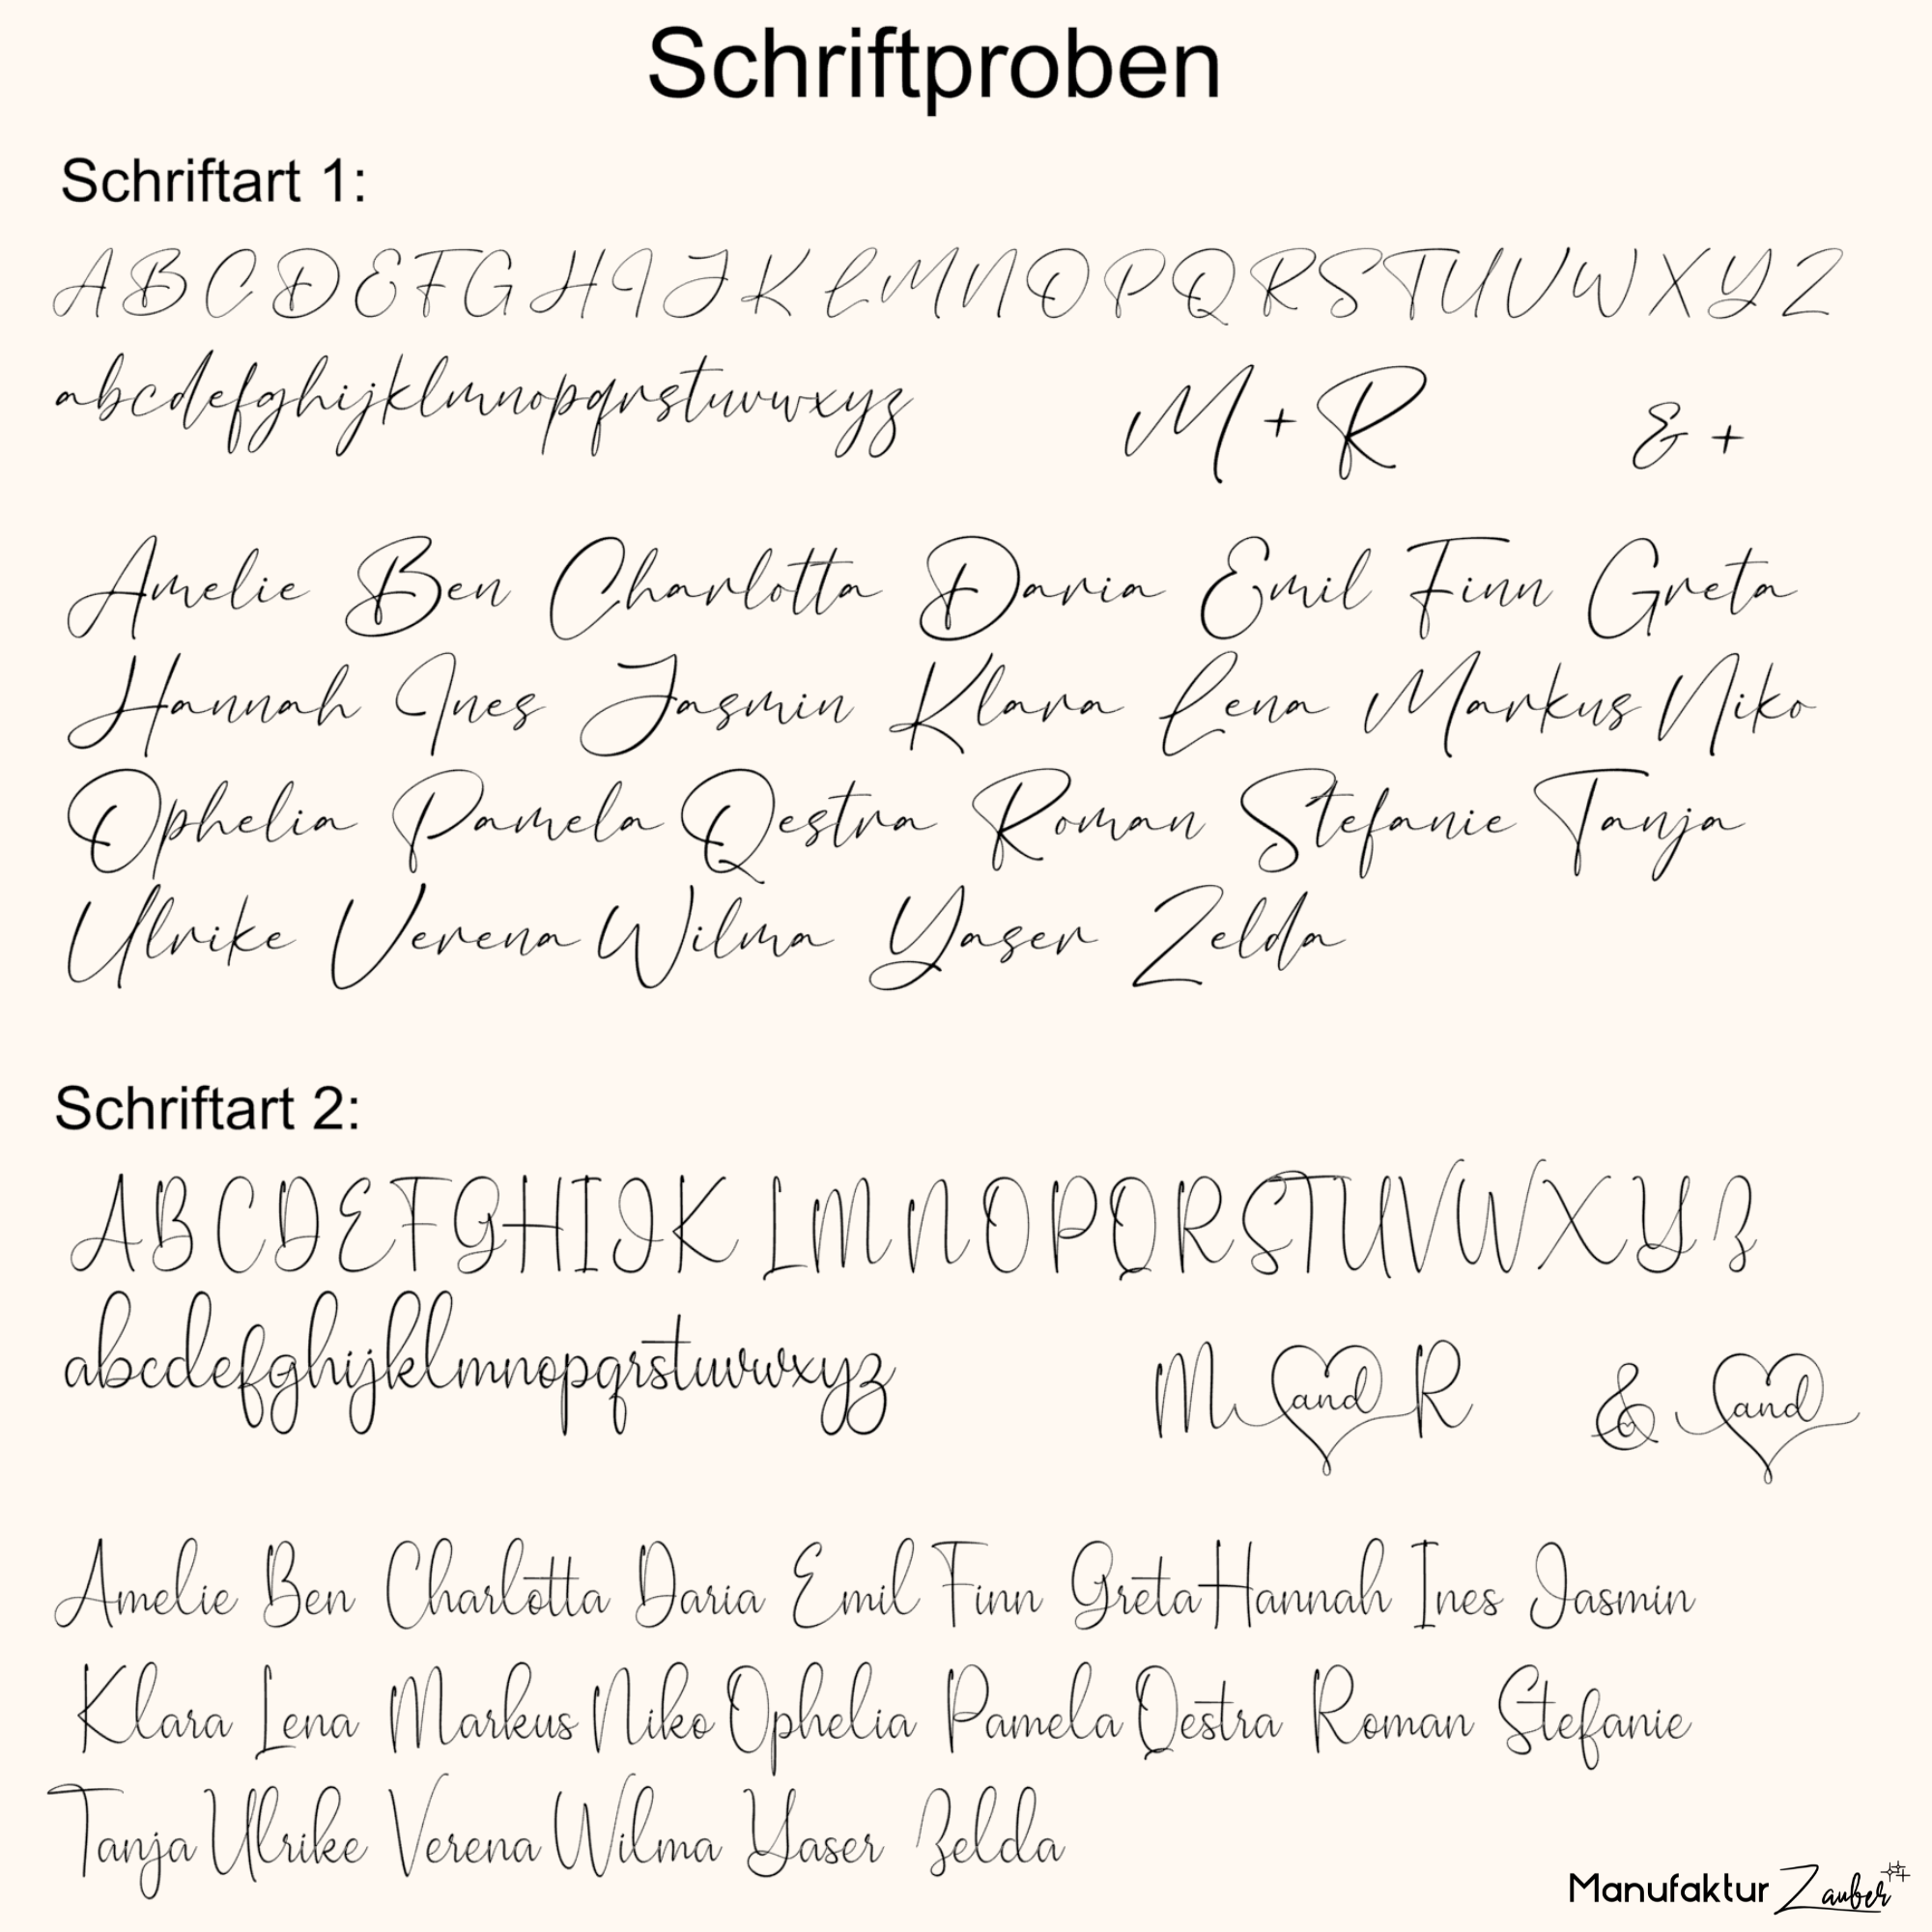 Schriftproben
Schriftart 1:
A B C D E F G H I J K L M N O P Q R S T U V W X Y Z
abcdefghijklmnopqrstuvwxyz M + R & +
Amelie Ben Charlotta Daria Emil Finn Greta
Hannah Ines Jasmin Klara Lena Markus Niko
Ophelia Pamela Qestra Roman Stefanie Tanja
Ulrike Verena Wilma Yaser Zelda
Schriftart 2:
A B C D E F G H I J K L M N O P Q R S T U V W X Y Z
abcdefghijklmnopqrstuvwxyz M and R & and
Amelie Ben Charlotta Daria Emil Finn Greta Hannah Ines Jasmin
Klara Lena Markus Niko Ophelia Pamela Qestra Roman Stefanie
Tanja Ulrike Verena Wilma Yaser Zelda
Manufaktur Zauber